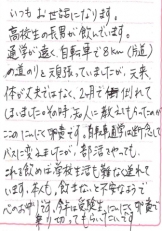 いつもお世話になります。
高校生の長男が飲んでいます。
通学が遠く、自転車で8km(片道)
の道のりを頑張っていましたが、元来
体が丈夫ではなく、2月で倒れて
しまいました。その時、知人に教えてもらったのが
このにんにく卵黄です。自転車通学は断念して
バスに変えましたが、部活をやっても
これを飲めば高校生活も難なく送れて
います。本人も、飲まないと不安なようで
今年は受験生。にんにく卵黄で
乗り切ってもらいたいです